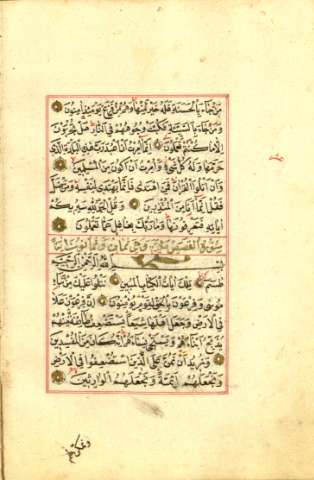 مَنْ جَاءَ بِالْحَسَنَةِ فَلَهُ خَيْرٌ مِنْهَا وَهُمْ مِنْ فَزَعٍ يَوْمَئِذٍ اٰمِنُونَ
وَمَنْ جَاءَ بِالسَّيِّئَةِ فَكُبَّتْ وُجُوهُهُمْ فِي النَّارِ هَلْ تُجْزَوْنَ
اِلَّا مَا كُنْتُمْ تَعْمَلُونَ اِنَّمَا اُمِرْتُ اَنْ اَعْبُدَ رَبَّ هٰذِهِ الْبَلْدَةِ الَّذِي
حَرَّمَهَا وَلَهُ كُلُّ شَيْءٍ وَاُمِرْتُ اَنْ اَكُونَ مِنَ الْمُسْلِمِينَ
وَاَنْ اَتْلُوَ الْقُرْاٰنَ فَمَنِ اهْتَدٰى فَاِنَّمَا يَهْتَدِي لِنَفْسِهِ وَمَنْ ضَلَّ
فَقُلْ اِنَّمَا اَنَا مِنَ الْمُنْذِرِينَ وَقُلِ الْحَمْدُ لِلّٰهِ سَيُرِيكُمْ
اٰيَاتِهِ فَتَعْرِفُونَهَا وَمَا رَبُّكَ بِغَافِلٍ عَمَّا تَعْمَلُونَ
سورة القصص مكية وهي ثمان وثمانون آية
بِسْمِ اللّٰهِ الرَّحْمٰنِ الرَّحِيمِ
طٰسم تِلْكَ اٰيَاتُ الْكِتَابِ الْمُبِينِ نَتْلُو عَلَيْكَ مِنْ نَبَاِ
مُوسٰى وَفِرْعَوْنَ بِالْحَقِّ لِقَوْمٍ يُؤْمِنُونَ اِنَّ فِرْعَوْنَ عَلَا
فِي الْاَرْضِ وَجَعَلَ اَهْلَهَا شِيَعًا يَسْتَضْعِفُ طَائِفَةً مِنْهُمْ
يُذَبِّحُ اَبْنَاءَهُمْ وَيَسْتَحْيِي نِسَاءَهُمْ اِنَّهُ كَانَ مِنَ الْمُفْسِدِينَ
وَنُرِيدُ اَنْ نَمُنَّ عَلَى الَّذِينَ اسْتُضْعِفُوا فِي الْاَرْضِ
وَنَجْعَلَهُمْ اَئِمَّةً وَنَجْعَلَهُمُ الْوَارِثِينَ
ونمكن